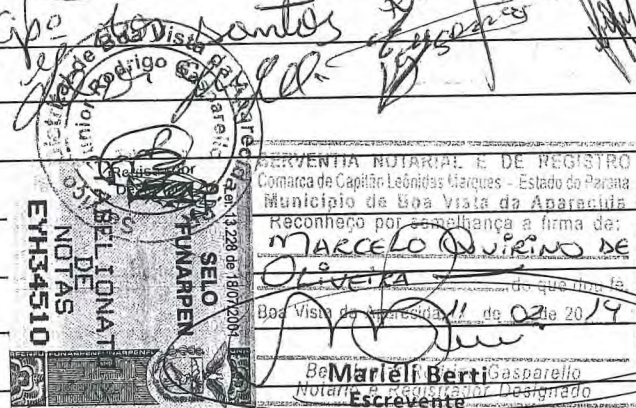 dos Santos
Distrital de Boa Vista da Aparecida
Junior Rodrigo Gasparello
SELO
FUNARPEN
Lei 13.228 de 18/07/2001
TABELIONATO
DE
NOTAS
EYH34510
SERVENTIA NOTARIAL E DE REGISTRO
Comarca de Capitão Leônidas Marques - Estado do Paraná
Município de Boa Vista da Aparecida
Reconheço por semelhança a firma de:
MARCELO QUIRINO DE
OLIVEIRA do que dou fé.
Boa Vista da Aparecida 11 de 02 de 2014
Gasparello
Mariéli Berti
Notário e Registrador Designado
Escrevente